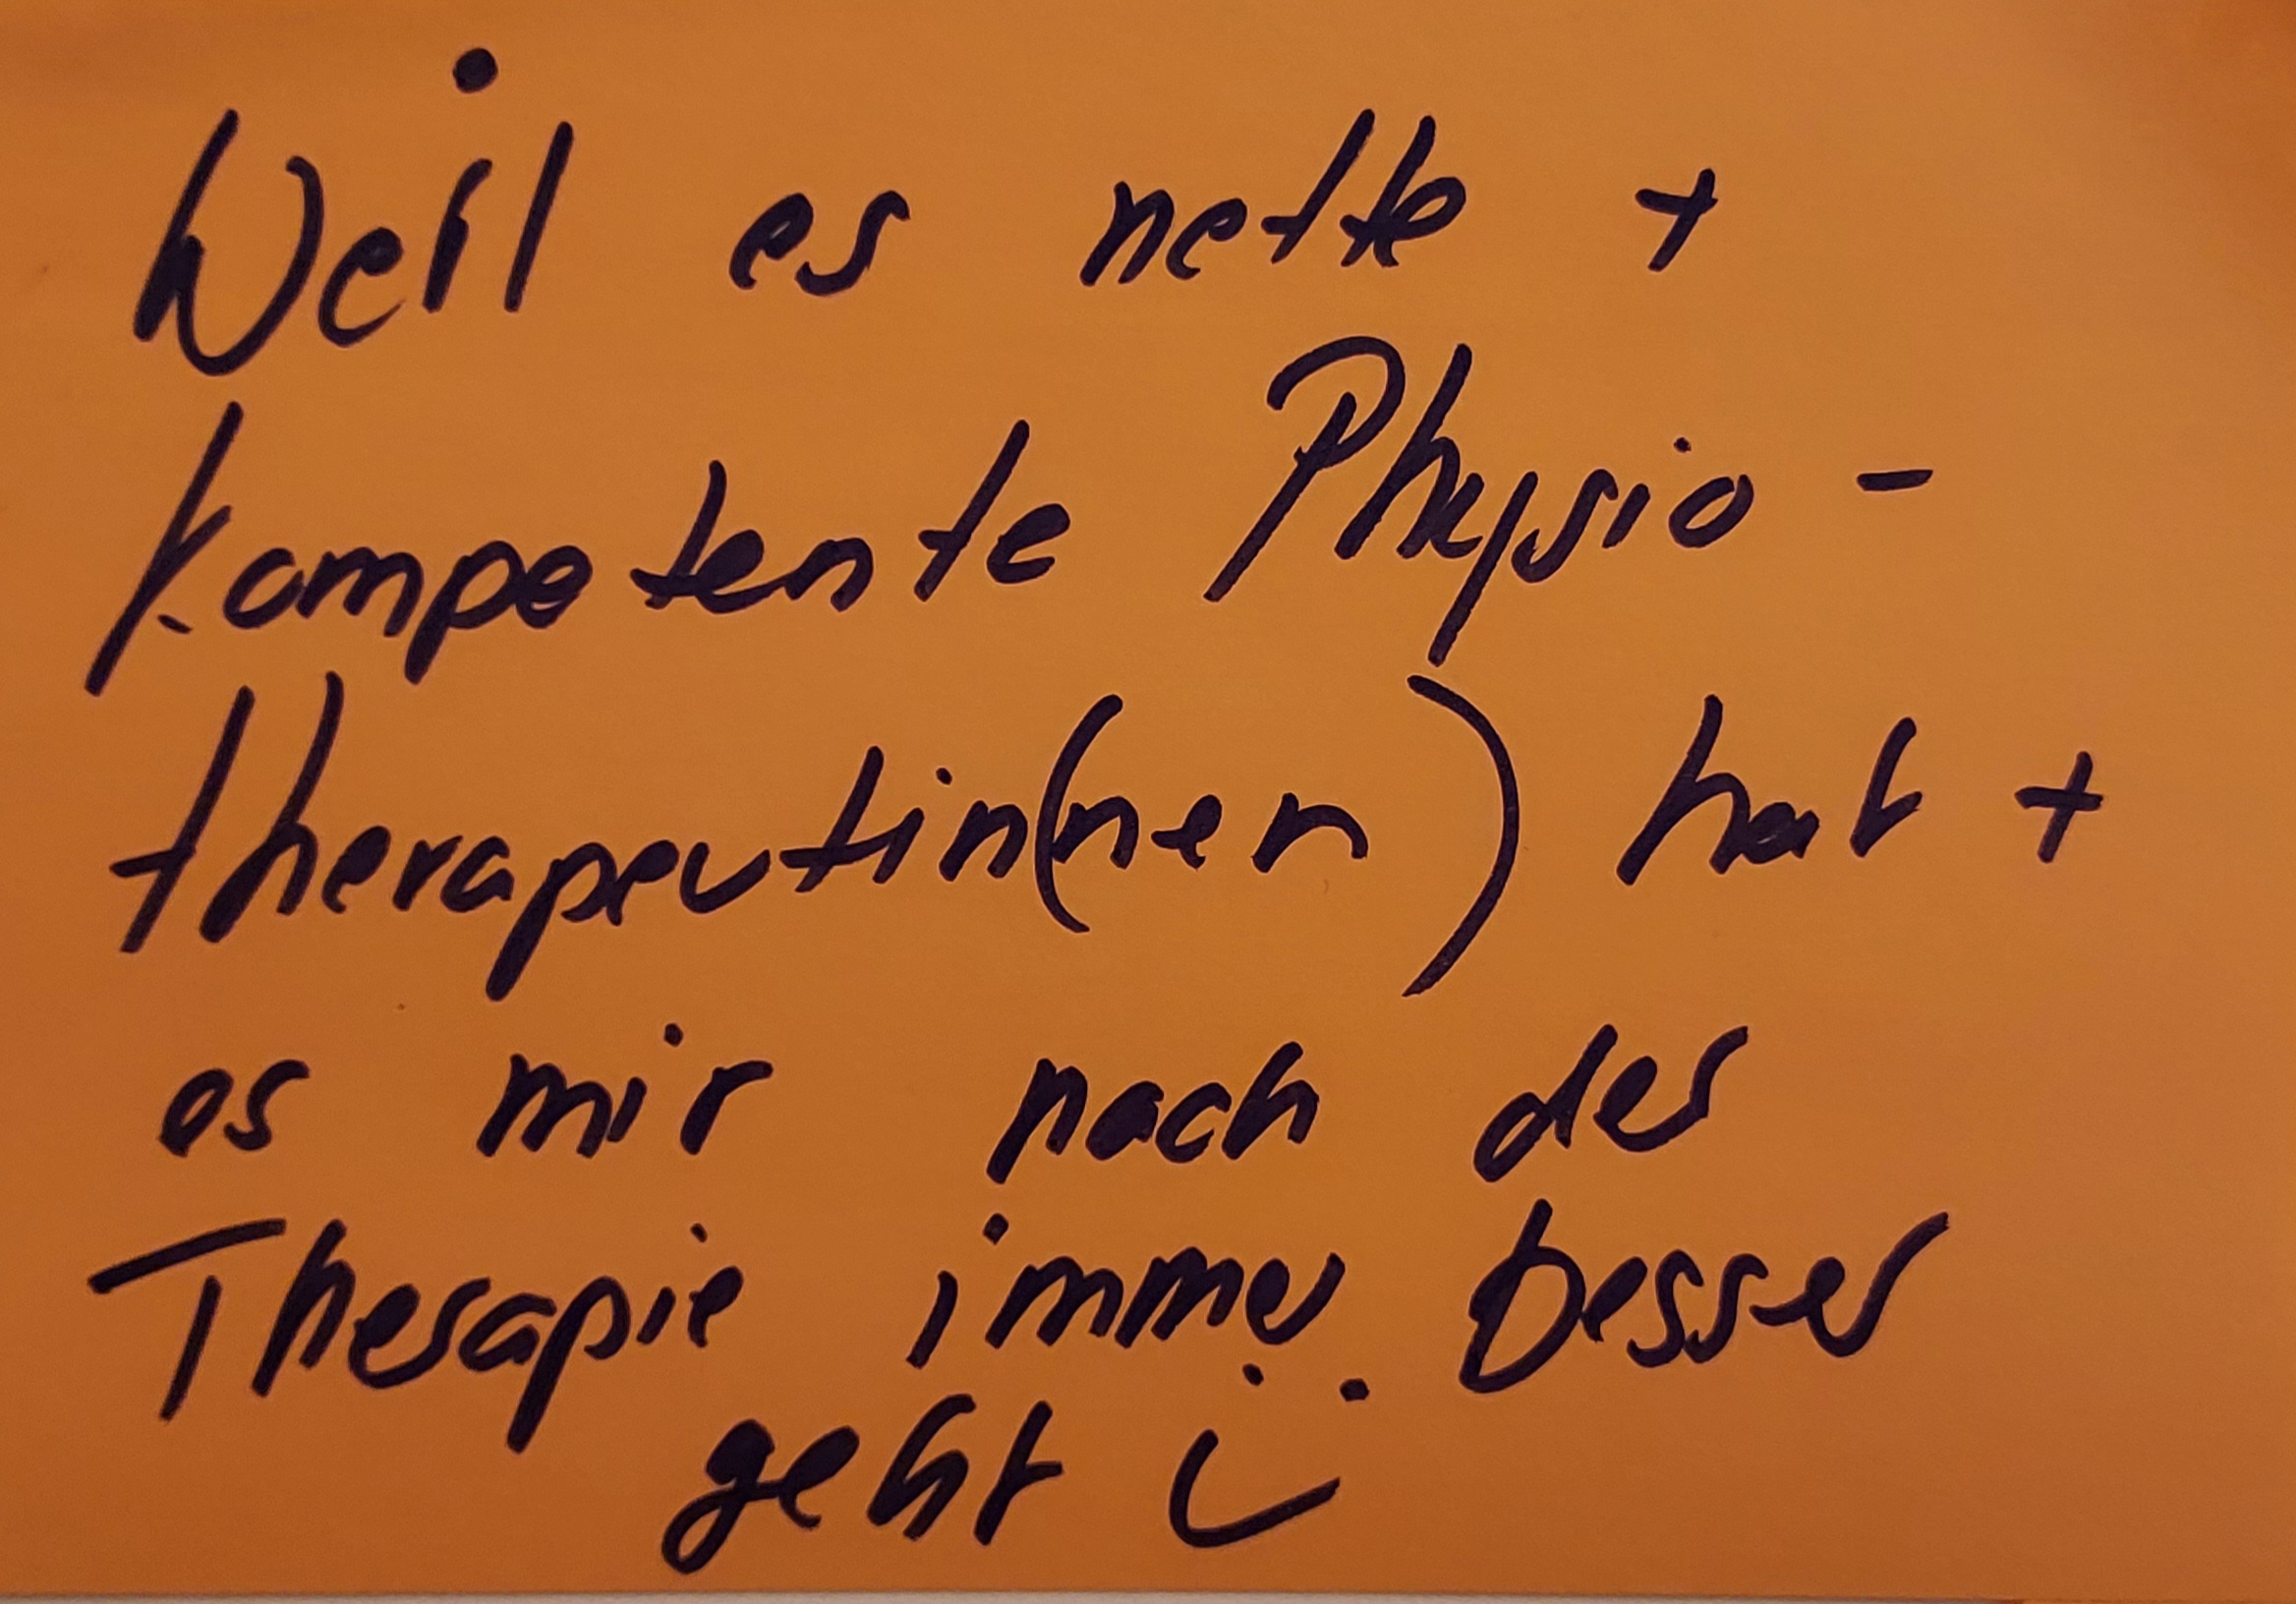 Weil es nette +
kompetente Physio -
therapeutin(nen) hat +
es mir nach der
Therapie immer besser
geht